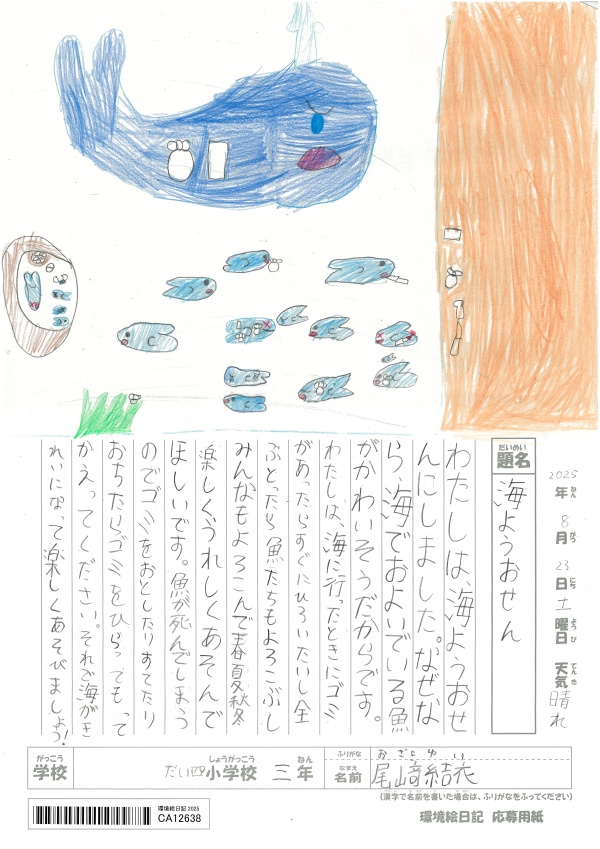 2025年ねん 8月がつ 23日にち 土曜日ようび 天気てんき 晴れ
題名だいめい
海ようおせん
わたしは、海ようおせ
んにしました。なぜな
ら、海でおよいでいる魚
がかわいそうだからです。
わたしは、海に行ったときにゴミ
があったらすぐにひろいたいし全
ぶとったら魚たちもよろこぶし
みんなもよろこんで春夏秋冬
楽しくうれしくあそんで
ほしいです。魚が死んでしまう
のでゴミをおとしたりすてたり
おちたらゴミをひらってもって
かえってください。それで海がき
れいになって楽しくあそびましょう!
学校がっこう だい四小学校しょうがっこう 三年ねん
ふりがな おざきゆい
名前なまえ 尾﨑結衣
(漢字で名前を書いた場合は、ふりがなをふってください)
環境絵日記 2025
CA12638
環境絵日記 応募用紙